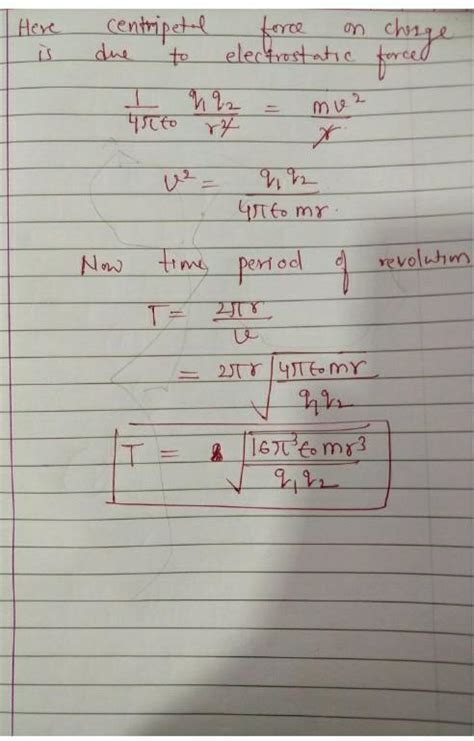 Here centripetal force on charge
is due to electrostatic forces
1/4πε0 q1q2/r² = mv²/r
v² = q1q2/4πε0mr.
Now time period of revolution
T = 2πr/v
= 2πr √(4πε0mr/q1q2)
T = √(16π³ε0mr³/q1q2)